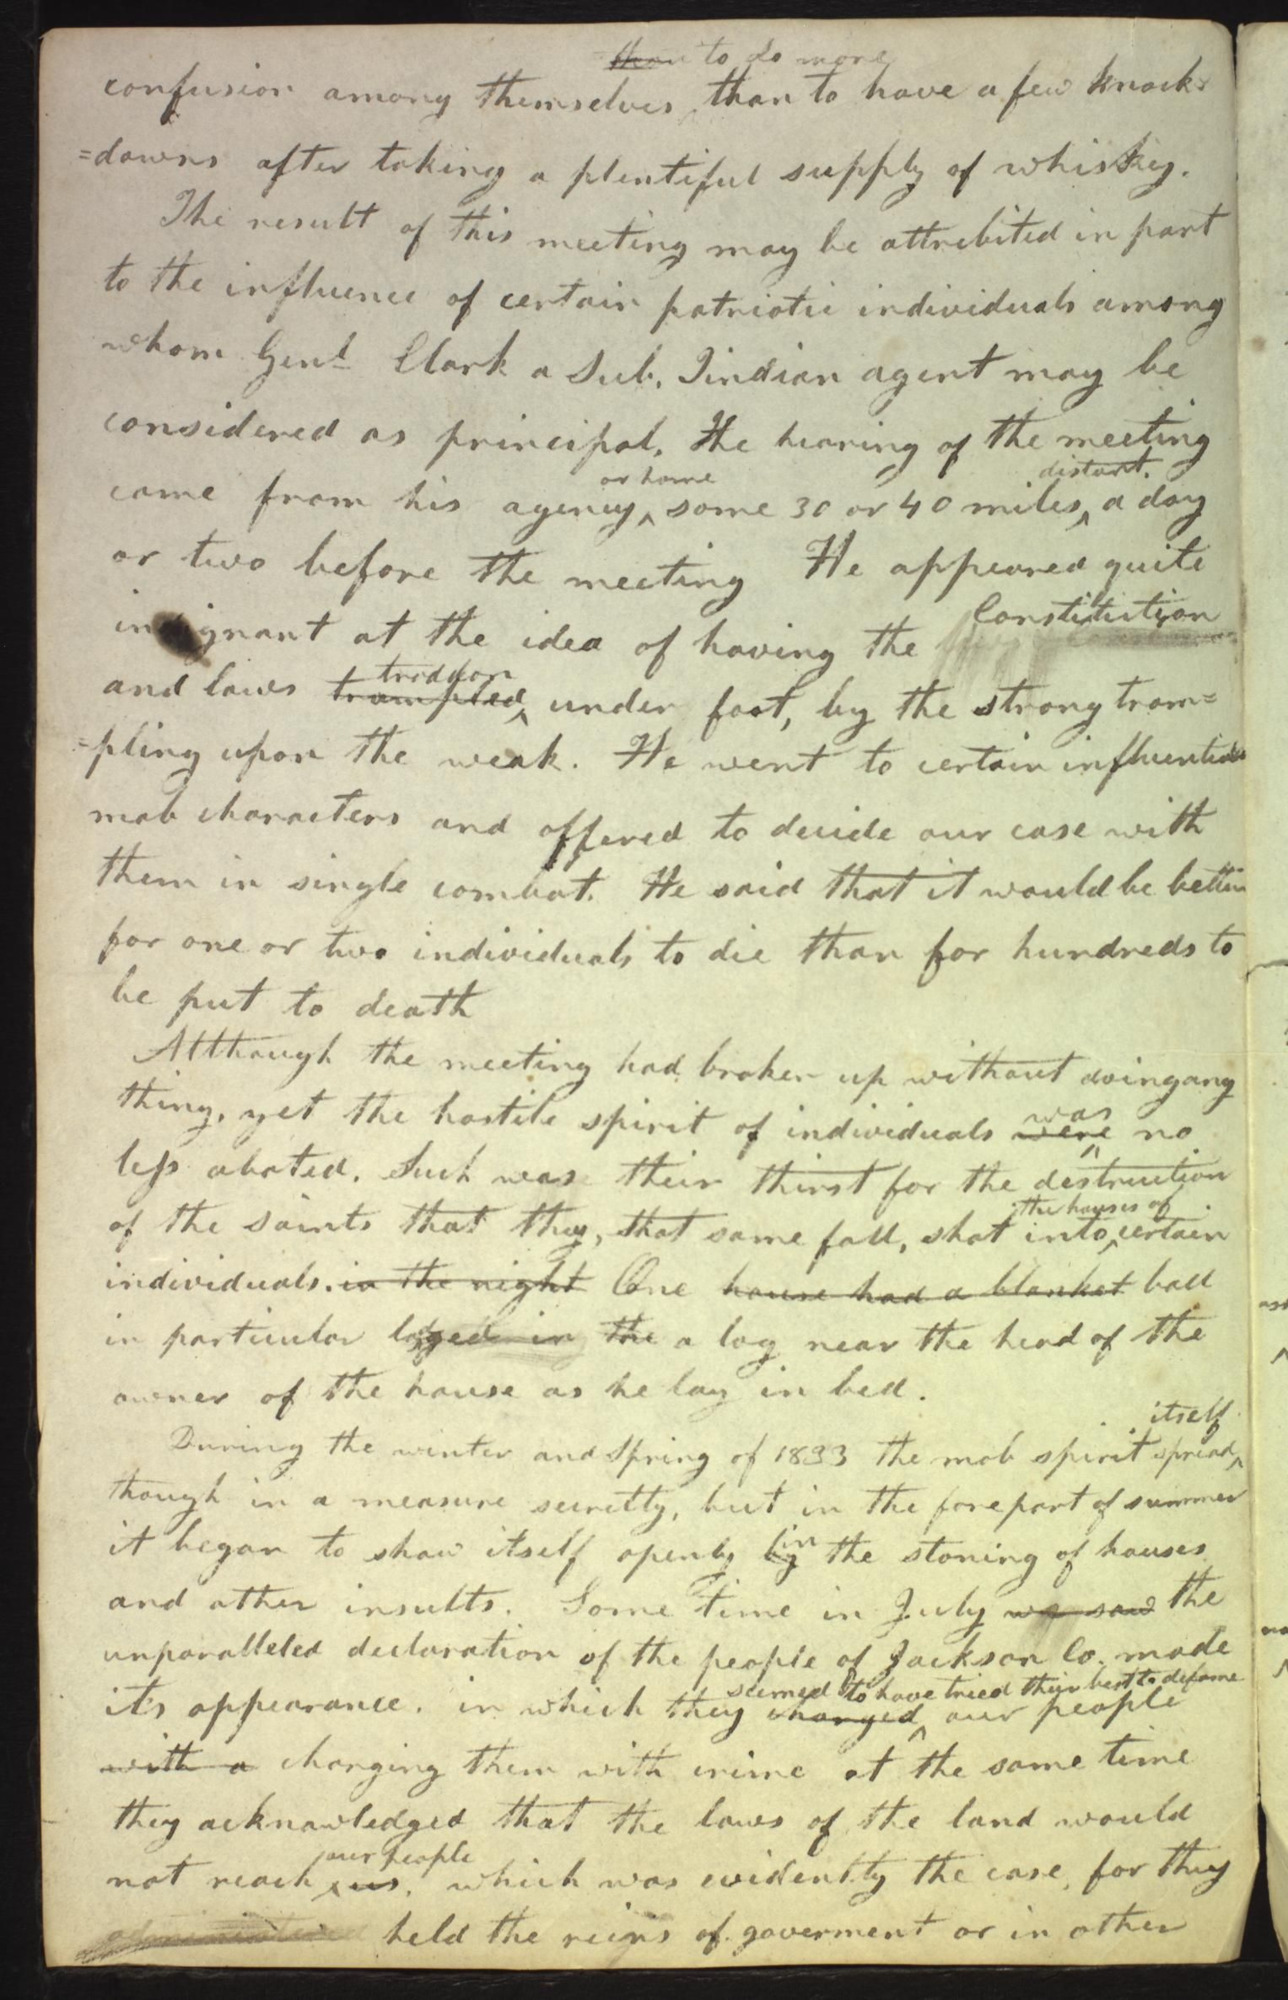 than to do more
confusion among themselves, than to have a few knock=
=downs after taking a plentiful supply of whiskey.
The result of this meeting may be attrebited in part
to the influence of certain patriotic individuals among
whom Genl Clark a Sub. Jindian agent may be
considered as principal. He hearing of the meeting
or home distant.
came from his agency^ some 30 or 40 miles^ a day
or two before the meeting He appeared quite
Constitution
indignant at the idea of having the
troddon
and laws trampled^ under foot, by the strong tram=
=pling upon the weak. He went to certain influential
mob characters and offered to decide our case with
them in single combat. He said that it would be better
for one or two individuals to die than for hundreds to
be put to death
Although the meeting had broken up without doing any
was
thing, yet the hostile spirit of individuals were^ no
less abated. Such was their thirst for the destruction
the houses of
of the Saints that they, that same fall, shot into^ certain
individuals. in the night One house had a blanket ball
in particular lodged in the a log near the head of the
owner of the house as he lay in bed.
itself
During the winter and Spring of 1833 the mob spirit spread^
though in a measure secretly, but in the forepart of summer
in
it began to show itself openly by the stoning of houses
and other insults. Some time in July we saw the
unparalleled declaration of the people of Jackson Co. made
seemed to have tried their best to defame
its appearance. in which they charged^ our people
with a charging them with crime at the same time
they acknowledged that the laws of the land would
our people
not reach ^us, which was evidently the case, for they
held the reigns of goverment or in other